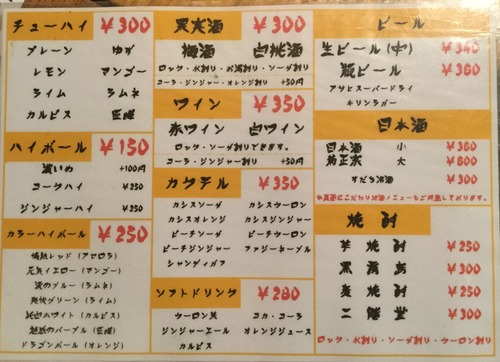 チューハイ ￥300
プレーン ゆず
レモン マンゴー
ライム ラムネ
カルピス 巨峰
ハイボール ￥150
濃いめ +100円
コークハイ ￥250
ジンジャーハイ ￥250
カラーハイボール ￥250
情熱レッド(アセロラ)
元気イエロー(マンゴー)
涙のブルー(ラムネ)
爽快グリーン(ライム)
純白ホワイト(カルピス)
魅惑のパープル(巨峰)
ドラゴンボール(オレンジ)
果実酒 ￥300
梅酒 白桃酒
ロック・水割り・お湯割り・ソーダ割り
コーラ・ジンジャー・オレンジ割り +50円
ワイン ￥350
赤ワイン 白ワイン
ロック・ソーダ割りできます。
コーラ・ジンジャー割り +50円
カクテル ￥350
カシスソーダ カシスウーロン
カシスオレンジ カシスジンジャー
ピーチソーダ ピーチウーロン
ピーチジンジャー ファジーネーブル
シャンディガフ
ソフトドリンク ￥280
ウーロン茶 コカ・コーラ
ジンジャーエール オレンジジュース
カルピス
ビール
生ビール(中) ￥340
瓶ビール ￥360
アサヒスーパードライ
キリンラガー
日本酒
日本酒 小 ￥360
菊正宗 大 ￥600
すだち冷酒 ￥300
焼酎
芋焼酎 ￥250
黒霧島 ￥300
麦焼酎 ￥250
二階堂 ￥300
ロック・水割り・ソーダ割り・ウーロン割り